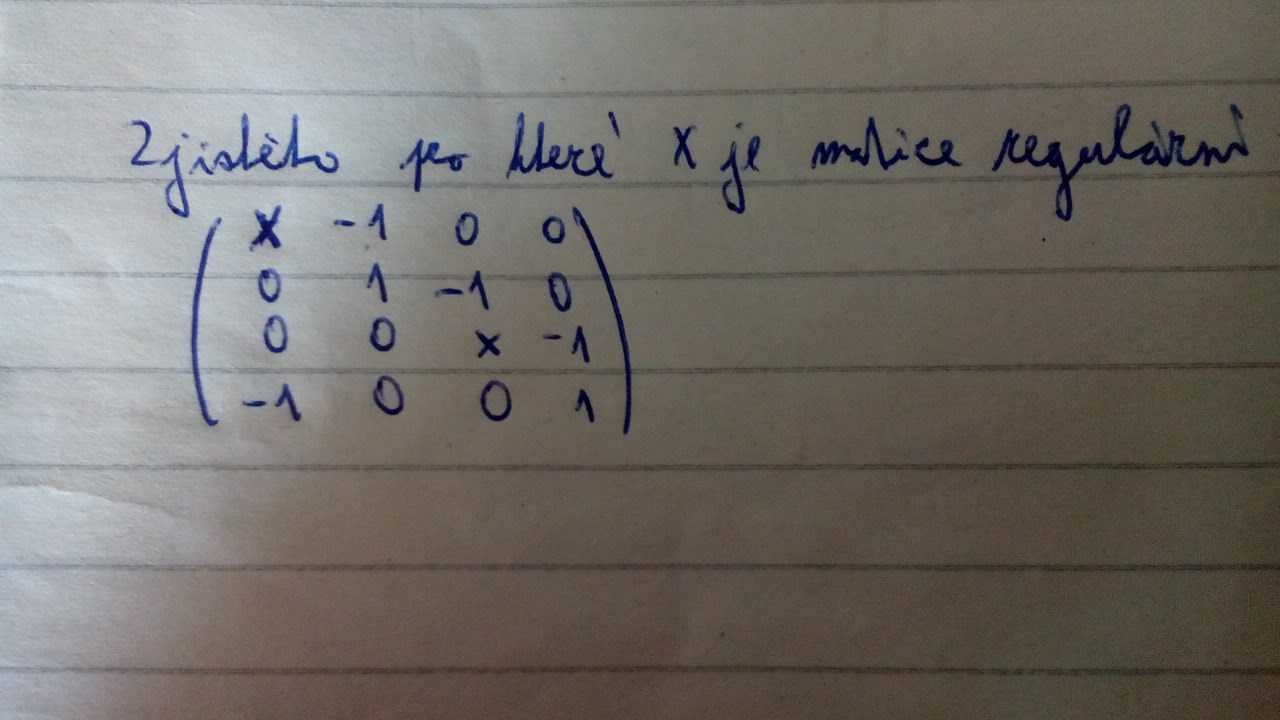 Zjistěto po které x je matice regulární
x -1 0 0
0 1 -1 0
0 0 x -1
-1 0 0 1